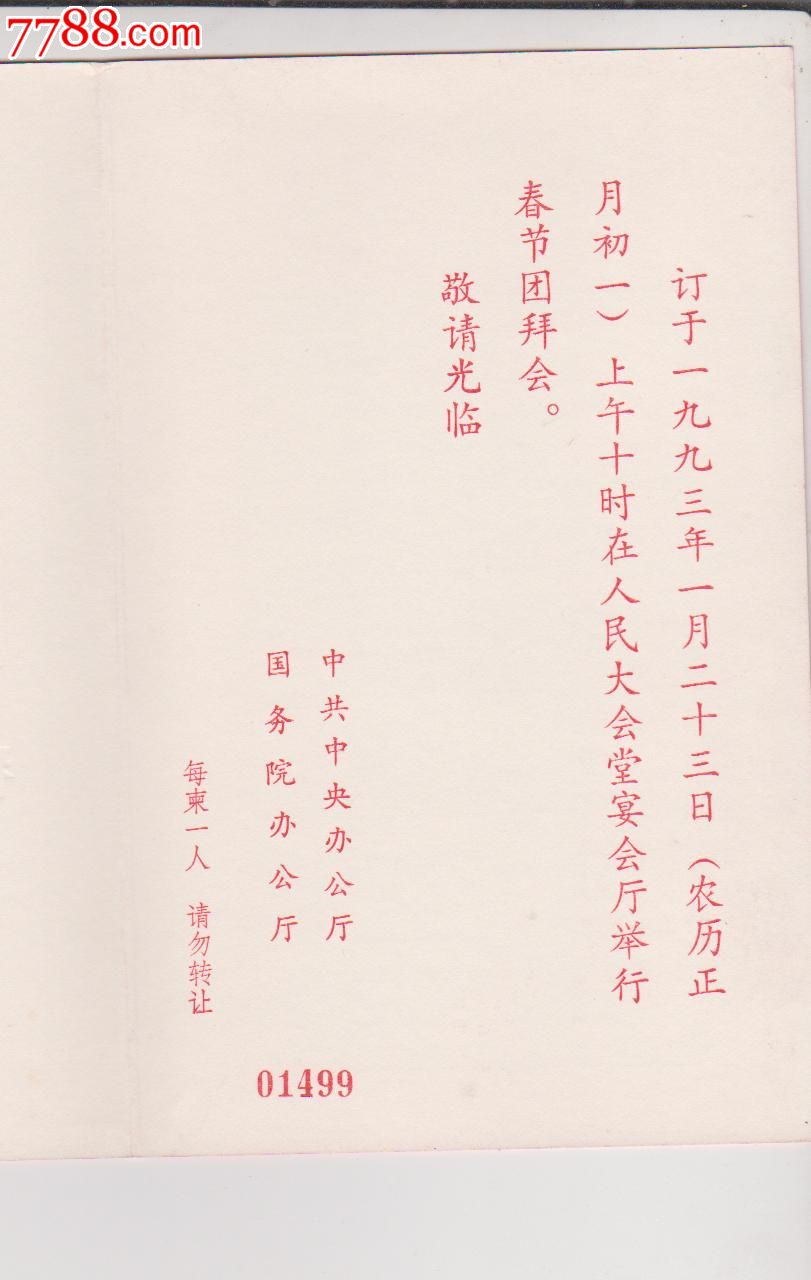 7788.com
订于一九九三年一月二十三日（农历正
月初一）上午十时在人民大会堂宴会厅举行
春节团拜会。
敬请光临
中共中央办公厅
国务院办公厅
每柬一人 请勿转让
01499